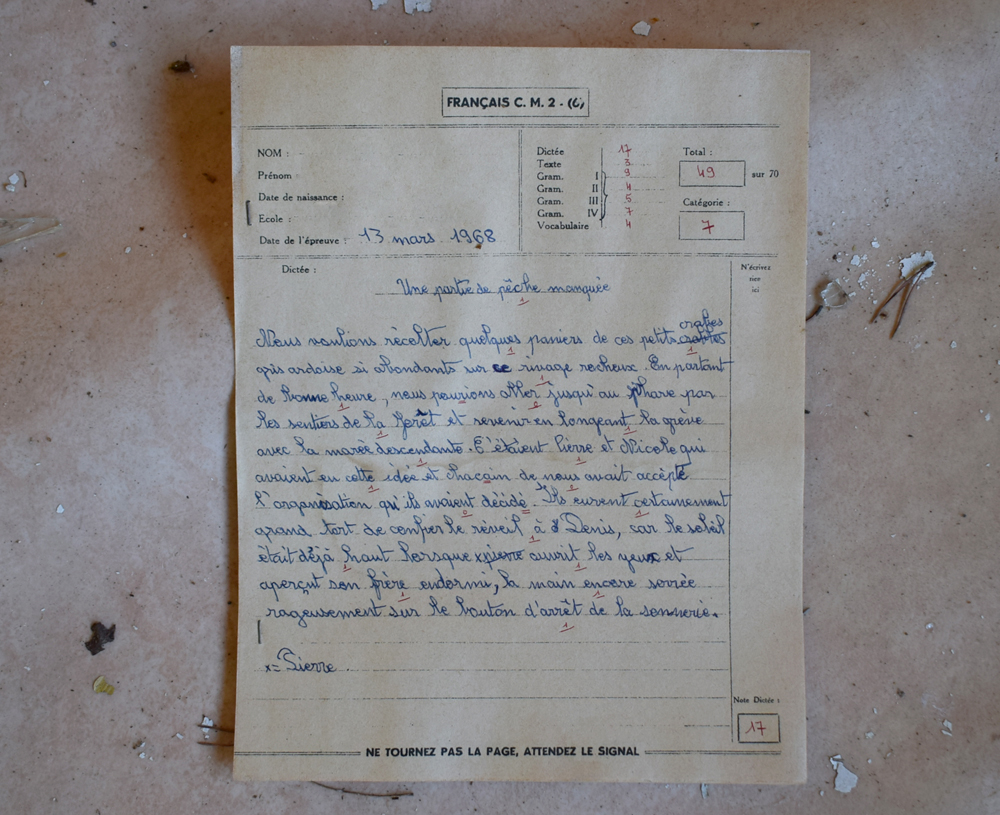 FRANÇAIS C. M. 2 - (6)
NOM :
Prénom :
Date de naissance :
Ecole :
Date de l'épreuve : 13 mars 1968
Dictée 17
Texte 3
Gram. I 9
Gram. II 4
Gram. III 5
Gram. IV 7
Vocabulaire 4
Total :
49 sur 70
Catégorie :
7
Dictée :
N'écrivez
rien
ici
Une partie de pêche manquée
crabes
Nous voulions récolter quelques paniers de ces petits
gris ardoise si abondants sur ce rivage rocheux. En partant
de bonne heure, nous pourions aller jusqu'au phare par
les sentiers de la forêt et revenir en longeant la grève
avec la marée descendante. C'étaient Pierre et Nicole qui
avaient eu cette idée et chacun de nous avait accepté
l'organisation qu'ils avaient décidé. Ils eurent certainement
grand tort de confier le réveil à Denis, car le soleil
était déjà haut lorsque x pierre ouvrit les yeux et
aperçut son frère endormi, la main encore serrée
rageusement sur le bouton d'arrêt de la sonnerie.
x = Pierre
Note Dictée :
17
NE TOURNEZ PAS LA PAGE, ATTENDEZ LE SIGNAL